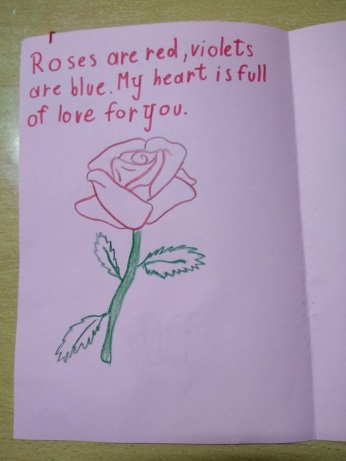 Roses are red, violets
are blue. My heart is full
of love for you.